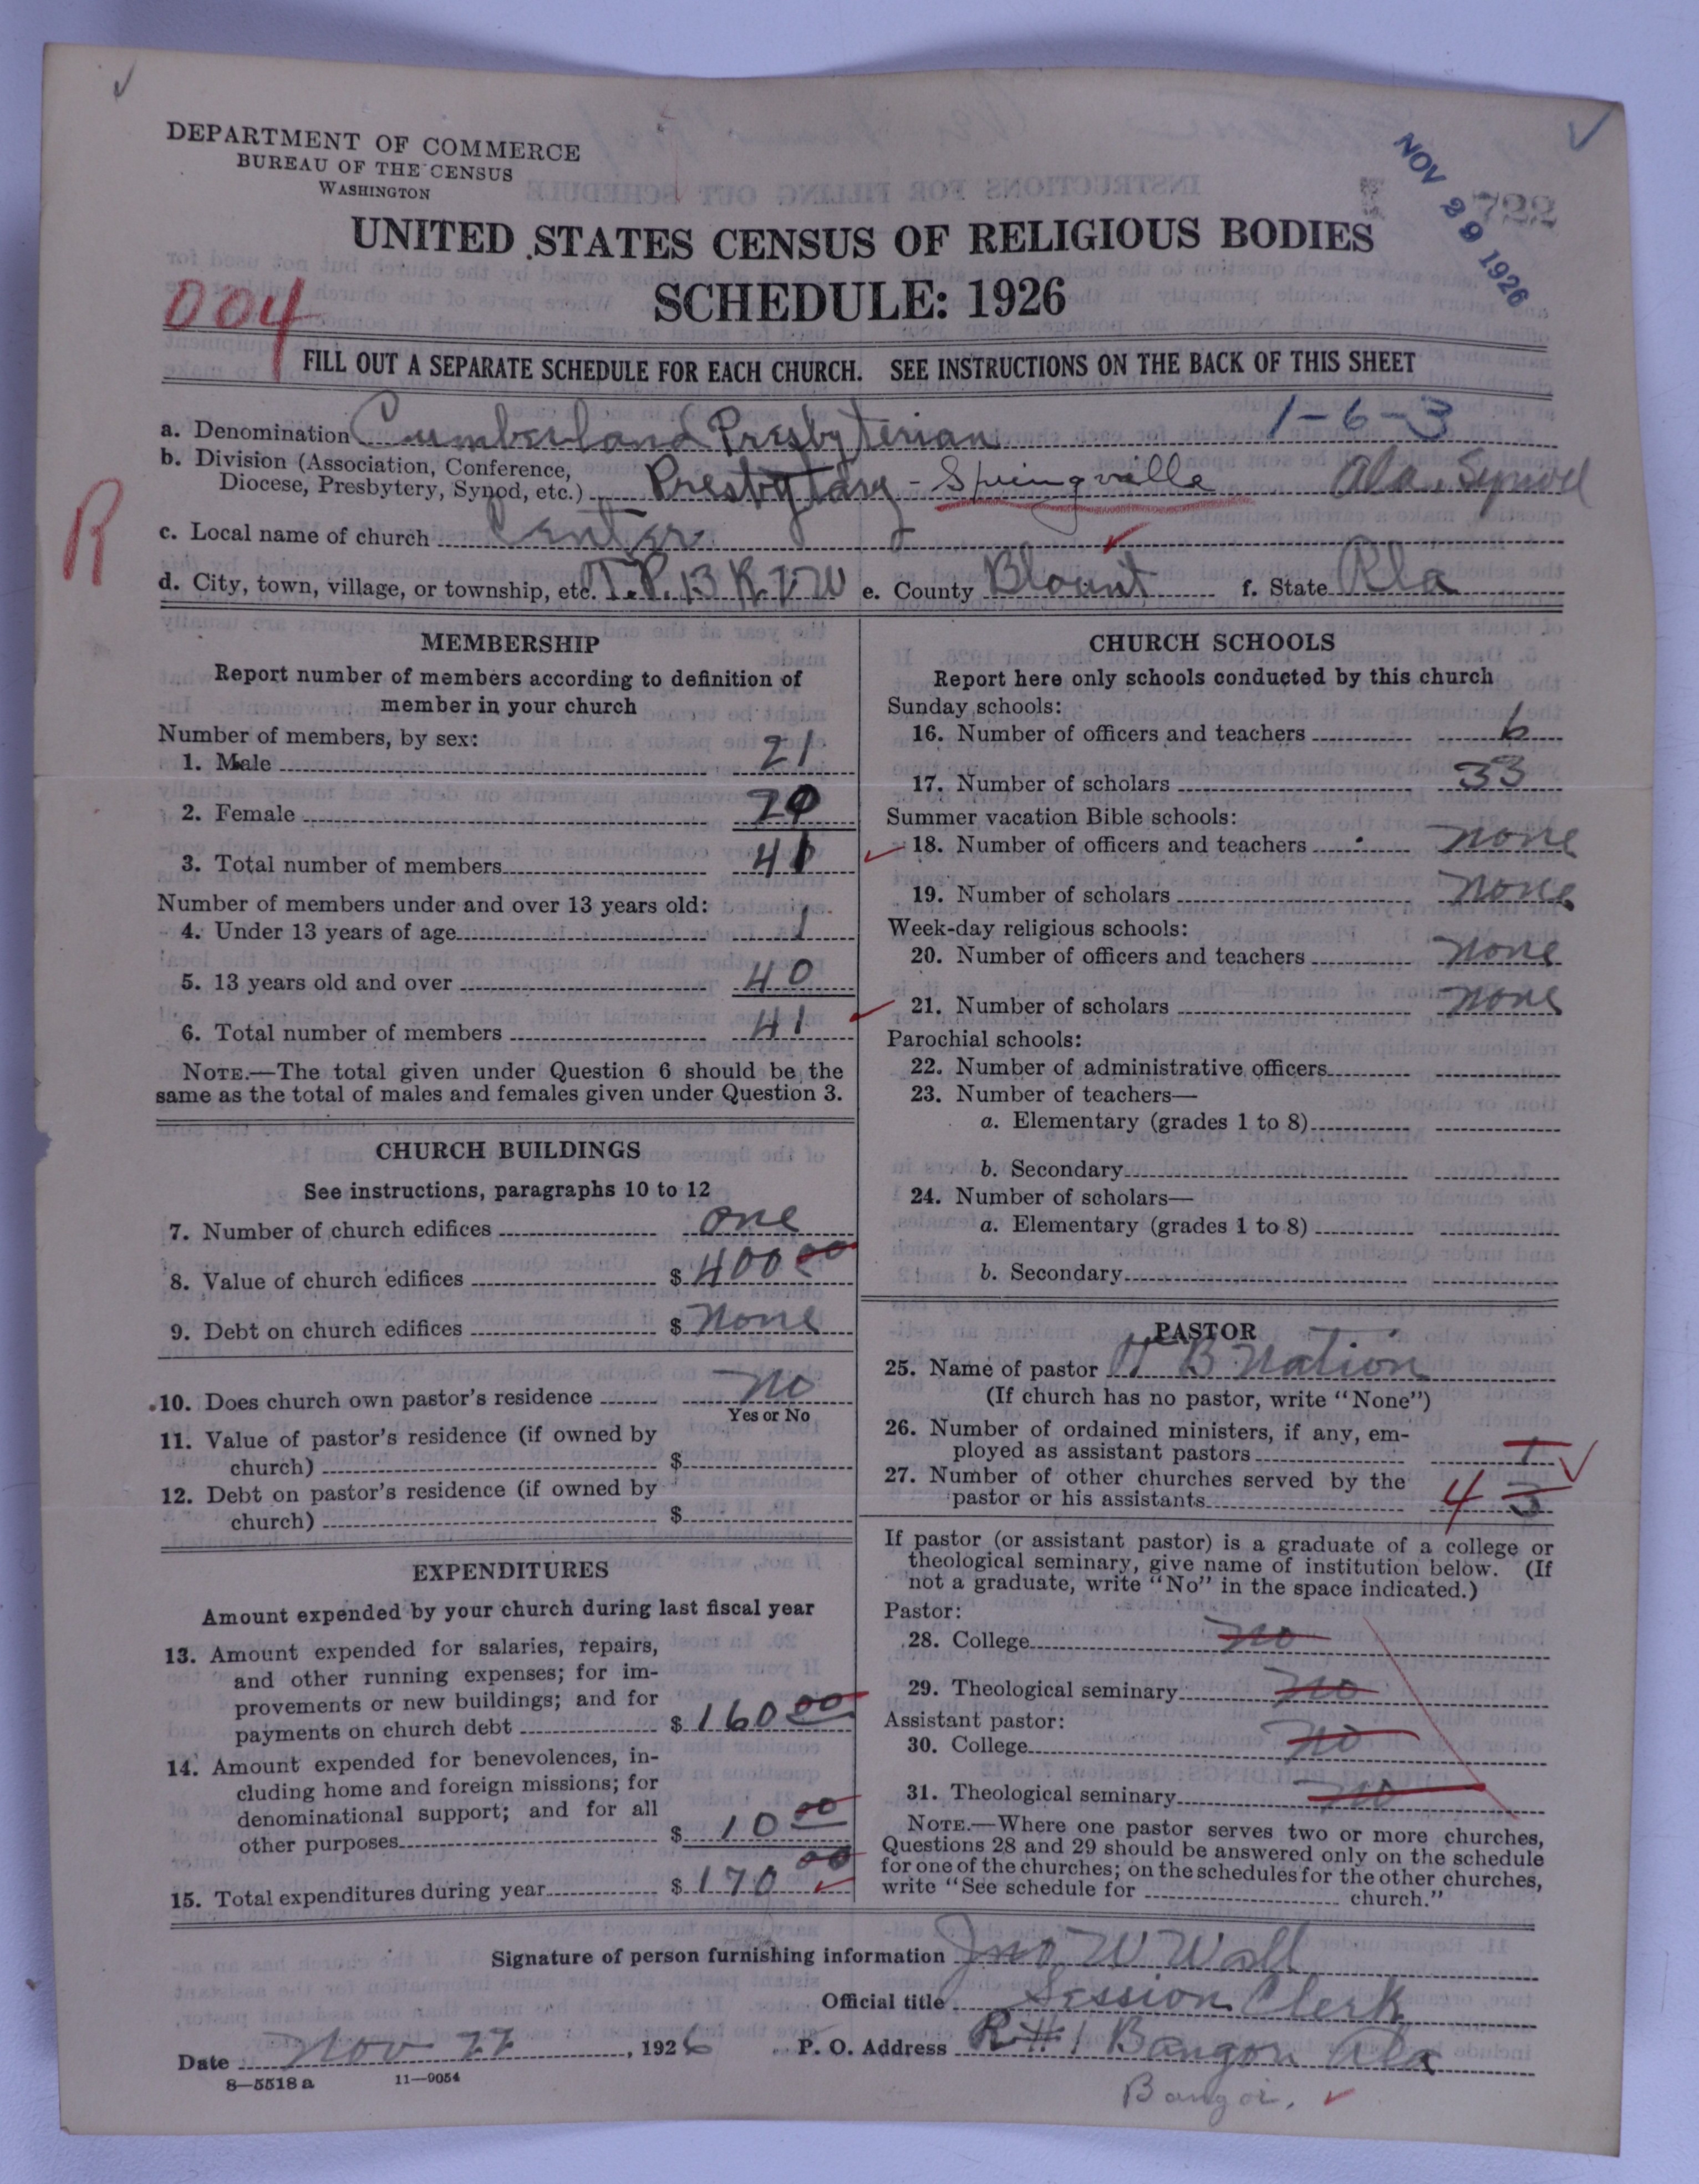 DEPARTMENT OF COMMERCE
BUREAU OF THE CENSUS
WASHINGTON
NOV 29 1926
722
UNITED STATES CENSUS OF RELIGIOUS BODIES
SCHEDULE: 1926
004
FILL OUT A SEPARATE SCHEDULE FOR EACH CHURCH. SEE INSTRUCTIONS ON THE BACK OF THIS SHEET
a. Denomination Cumberland Presbyterian 1-6-3
b. Division (Association, Conference,
Diocese, Presbytery, Synod, etc.) Presbytary - Springville Ala. Synod
R
c. Local name of church Center
d. City, town, village, or township, etc. T.P. 13 R. 2 W e. County Blount f. State Ala
MEMBERSHIP
Report number of members according to definition of
member in your church
Number of members, by sex:
1. Male 21
2. Female 20
3. Total number of members 41
Number of members under and over 13 years old:
4. Under 13 years of age 1
5. 13 years old and over 40
6. Total number of members 41
NOTE.—The total given under Question 6 should be the
same as the total of males and females given under Question 3.
CHURCH BUILDINGS
See instructions, paragraphs 10 to 12
7. Number of church edifices one
8. Value of church edifices $ 400 00
9. Debt on church edifices $ none
10. Does church own pastor's residence no
Yes or No
11. Value of pastor's residence (if owned by
church) $
12. Debt on pastor's residence (if owned by
church) $
EXPENDITURES
Amount expended by your church during last fiscal year
13. Amount expended for salaries, repairs,
and other running expenses; for im-
provements or new buildings; and for
payments on church debt $ 160 00
14. Amount expended for benevolences, in-
cluding home and foreign missions; for
denominational support; and for all
other purposes $ 10 00
15. Total expenditures during year $ 170 00
CHURCH SCHOOLS
Report here only schools conducted by this church
Sunday schools:
16. Number of officers and teachers 6
17. Number of scholars 33
Summer vacation Bible schools:
18. Number of officers and teachers none
19. Number of scholars none
Week-day religious schools:
20. Number of officers and teachers none
21. Number of scholars none
Parochial schools:
22. Number of administrative officers
23. Number of teachers—
a. Elementary (grades 1 to 8)
b. Secondary
24. Number of scholars—
a. Elementary (grades 1 to 8)
b. Secondary
PASTOR
25. Name of pastor B Nation
(If church has no pastor, write "None")
26. Number of ordained ministers, if any, em-
ployed as assistant pastors 1
27. Number of other churches served by the
pastor or his assistants 4 3
If pastor (or assistant pastor) is a graduate of a college or
theological seminary, give name of institution below. (If
not a graduate, write "No" in the space indicated.)
Pastor:
28. College no
29. Theological seminary no
Assistant pastor:
30. College no
31. Theological seminary no
NOTE.—Where one pastor serves two or more churches,
Questions 28 and 29 should be answered only on the schedule
for one of the churches; on the schedules for the other churches,
write "See schedule for church."
Signature of person furnishing information Jno W Wall
Official title Session Clerk
Date Nov 22, 1926 P. O. Address R #1 Bangor Ala
8—5518a 11—9054
Bangor.